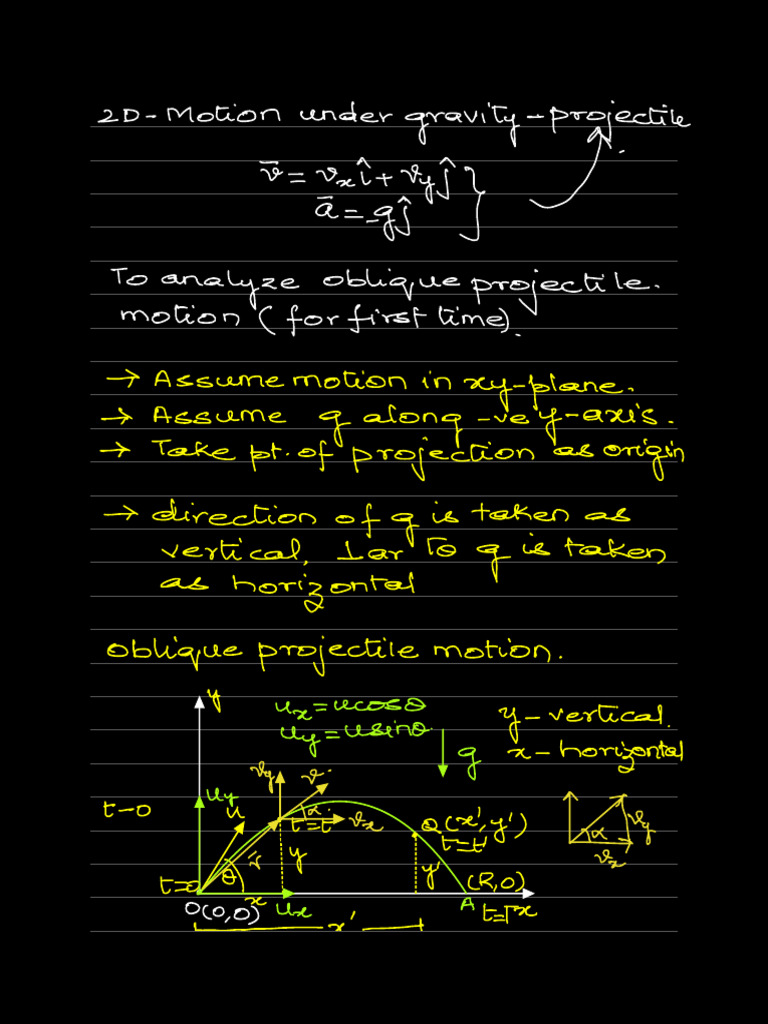 2D-Motion under gravity-projectile
v̄ = vₓî + v_yĵ }
ā = -gĵ
To analyze oblique projectile.
motion (for first time).
→ Assume motion in xy-plane.
→ Assume g along -ve y-axis.
→ Take pt. of projection as origin
→ direction of g is taken as
vertical, ⊥ar to g is taken
as horizontal
oblique projectile motion.
y
uₓ = ucosθ
u_y = usinθ
y-vertical.
x-horizontal
g
v_y
v
t-0
u_y
u
α
t=t
vₓ
Q(x', y')
t=t'
α
v_y
vₓ
r̄
y
y'
θ
t=0
(R,0)
O(0,0)
x
uₓ
A
t=T
x
x'